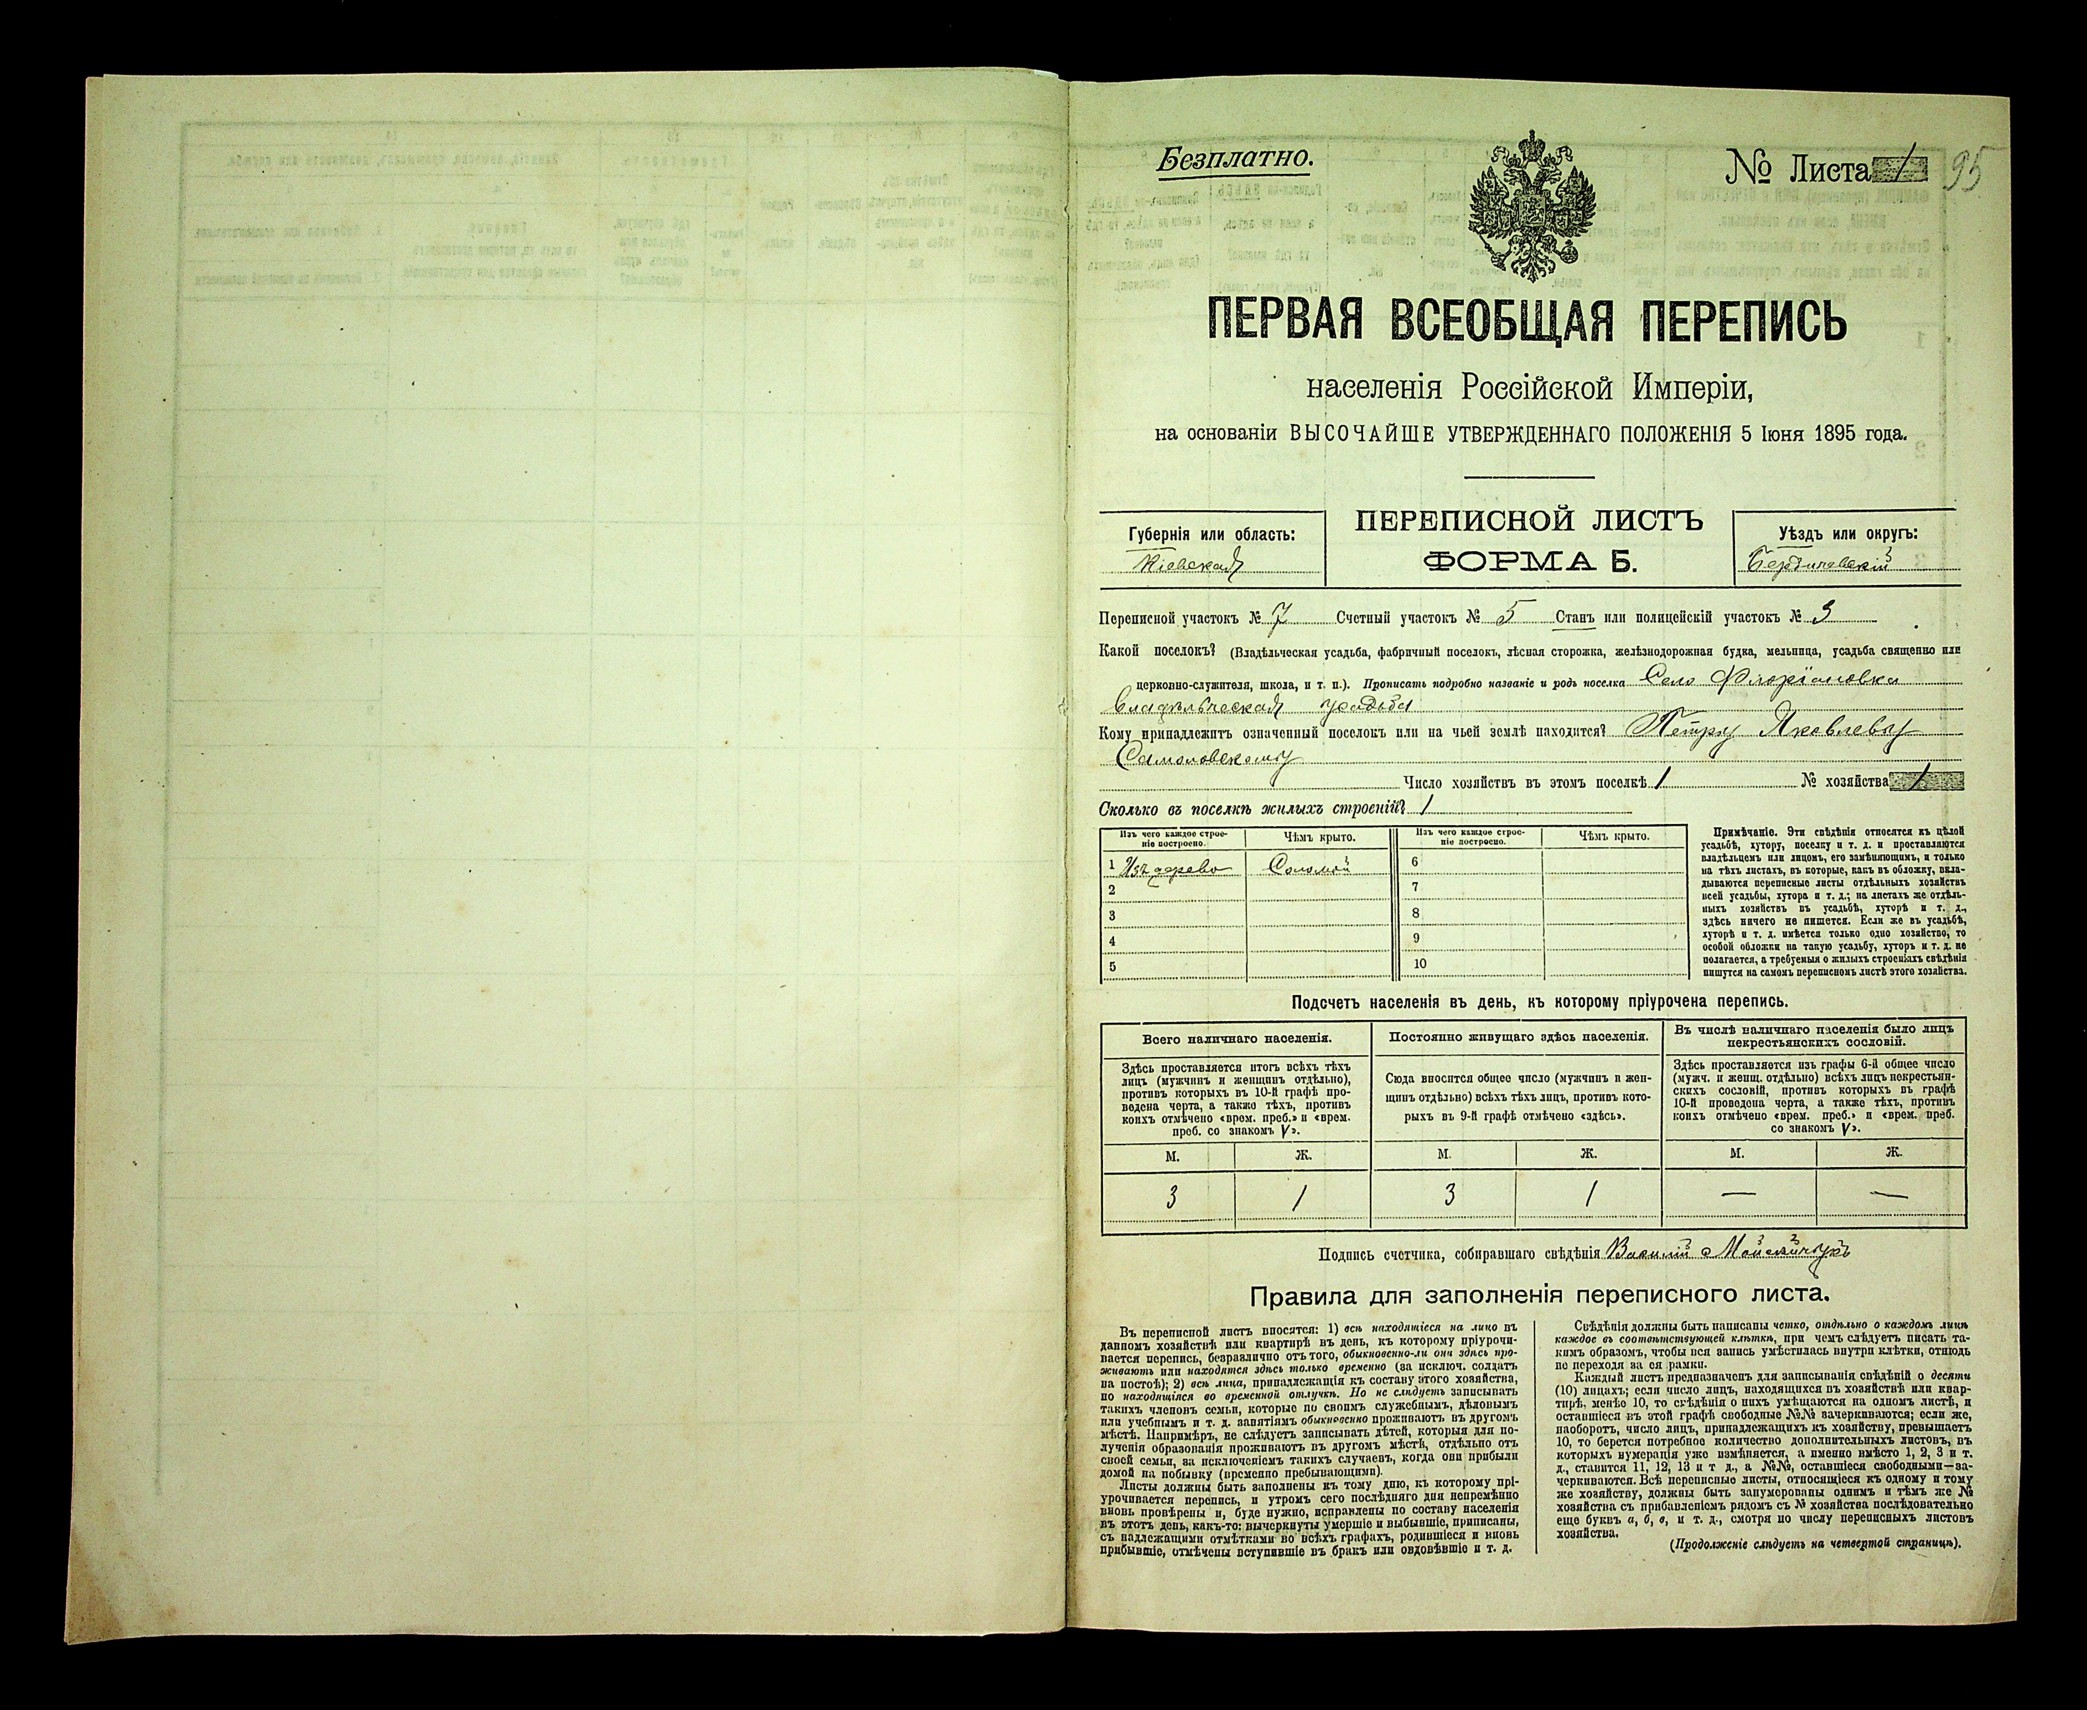 Безплатно.
№ Листа 1 95
ПЕРВАЯ ВСЕОБЩАЯ ПЕРЕПИСЬ
населенія Россійской Имперіи,
на основаніи ВЫСОЧАЙШЕ УТВЕРЖДЕННАГО ПОЛОЖЕНІЯ 5 Іюня 1895 года.
Губернія или область:
Кіевская
ПЕРЕПИСНОЙ ЛИСТЪ
ФОРМА Б.
Уѣздъ или округъ:
Бердичевскій
Переписной участокъ № 7 Счетный участокъ № 5 Станъ или полицейскій участокъ № 3
Какой поселокъ? (Владѣльческая усадьба, фабричный поселокъ, лѣсная сторожка, желѣзнодорожная будка, мельница, усадьба священно или
церковно-служителя, школа, и т. п.). Прописать подробно названіе и родъ поселка Село Флоріановка
владѣльческая усадьба
Кому принадлежитъ означенный поселокъ или на чьей землѣ находится? Петру Яковлеву
Число хозяйствъ въ этомъ поселкѣ 1 № хозяйства 1
Сколько въ поселкѣ жилыхъ строеній? 1
Изъ чего каждое строе-
ніе построено.
Чѣмъ крыто.
Изъ чего каждое строе-
ніе построено.
Чѣмъ крыто.
1 Изъ дерево Соломой 6
2 7
3 8
4 9
5 10
Примѣчаніе. Эти свѣдѣнія относятся къ цѣлой
усадьбѣ, хутору, поселку и т. д. и проставляются
владѣльцемъ или лицомъ, его замѣняющимъ, и только
на тѣхъ листахъ, въ которые, какъ въ обложку, вкла-
дываются переписные листы отдѣльныхъ хозяйствъ
всей усадьбы, хутора и т. д.; на листахъ же отдѣль-
ныхъ хозяйствъ въ усадьбѣ, хуторѣ и т. д.,
здѣсь ничего не пишется. Если же въ усадьбѣ,
хуторѣ и т. д. имѣется только одно хозяйство, то
особой обложки на такую усадьбу, хуторъ и т. д. не
полагается, а требуемыя о жилыхъ строеніяхъ свѣдѣнія
пишутся на самомъ переписномъ листѣ этого хозяйства.
Подсчетъ населенія въ день, къ которому пріурочена перепись.
Всего наличнаго населенія.
Здѣсь проставляется итогъ всѣхъ тѣхъ
лицъ (мужчинъ и женщинъ отдѣльно),
противъ которыхъ въ 10-й графѣ про-
ведена черта, а также тѣхъ, противъ
коихъ отмѣчено «врем. преб.» и «врем.
преб. со знакомъ V».
Постоянно живущаго здѣсь населенія.
Сюда вносится общее число (мужчинъ и жен-
щинъ отдѣльно) всѣхъ тѣхъ лицъ, противъ кото-
рыхъ въ 9-й графѣ отмѣчено «здѣсь».
Въ числѣ наличнаго населенія было лицъ
некрестьянскихъ сословій.
Здѣсь проставляется изъ графы 6-й общее число
(мужч. и женщ. отдѣльно) всѣхъ лицъ некрестьян-
скихъ сословій, противъ которыхъ въ графѣ
10-й проведена черта, а также тѣхъ, противъ
коихъ отмѣчено «врем. преб.» и «врем. преб.
со знакомъ V».
М. Ж. М. Ж. М. Ж.
3 1 3 1 — —
Подпись счетчика, собиравшаго свѣдѣнія Василій
Правила для заполненія переписного листа.
Въ переписной листъ вносятся: 1) всѣ находящіеся на лицо въ
данномъ хозяйствѣ или квартирѣ въ день, къ которому пріурочи-
вается перепись, безразлично отъ того, обыкновенно-ли они здѣсь про-
живаютъ или находятся здѣсь только временно (за исключ. солдатъ
на постоѣ); 2) всѣ лица, принадлежащія къ составу этого хозяйства,
но находящіяся во временной отлучкѣ. Но не слѣдуетъ записывать
такихъ членовъ семьи, которые по своимъ служебнымъ, дѣловымъ
или учебнымъ и т. д. занятіямъ обыкновенно проживаютъ въ другомъ
мѣстѣ. Напримѣръ, не слѣдуетъ записывать дѣтей, которыя для по-
лученія образованія проживаютъ въ другомъ мѣстѣ, отдѣльно отъ
своей семьи, за исключеніемъ такихъ случаевъ, когда они прибыли
домой на побывку (временно пребывающими).
Листы должны быть заполнены къ тому дню, къ которому прі-
урочивается перепись, и утромъ сего послѣдняго дня непремѣнно
вновь провѣрены и, буде нужно, исправлены по составу населенія
въ этотъ день, какъ-то: вычеркнуты умершіе и выбывшіе, приписаны,
съ надлежащими отмѣтками во всѣхъ графахъ, родившіеся и вновь
прибывшіе, отмѣчены вступившіе въ бракъ или овдовѣвшіе и т. д.
Свѣдѣнія должны быть написаны четко, отдѣльно о каждомъ лицѣ
каждое въ соотвѣтствующей клѣткѣ, при чемъ слѣдуетъ писать та-
кимъ образомъ, чтобы вся запись умѣстилась внутри клѣтки, отнюдь
не переходя за ея рамки.
Каждый листъ предназначенъ для записыванія свѣдѣній о десяти
(10) лицахъ; если число лицъ, находящихся въ хозяйствѣ или квар-
тирѣ, менѣе 10, то свѣдѣнія о нихъ умѣщаются на одномъ листѣ, и
оставшіеся въ этой графѣ свободные №№ зачеркиваются; если же,
наоборотъ, число лицъ, принадлежащихъ къ хозяйству, превышаетъ
10, то берется потребное количество дополнительныхъ листовъ, въ
которыхъ нумерація уже измѣняется, а именно вмѣсто 1, 2, 3 и т.
д., ставится 11, 12, 13 и т д., а №№, оставшіеся свободными—за-
черкиваются. Всѣ переписные листы, относящіеся къ одному и тому
же хозяйству, должны быть занумерованы однимъ и тѣмъ же №
хозяйства съ прибавленіемъ рядомъ съ № хозяйства послѣдовательно
еще буквъ а, б, в, и т. д., смотря по числу переписныхъ листовъ
хозяйства.
(Продолженіе слѣдуетъ на четвертой страницѣ).